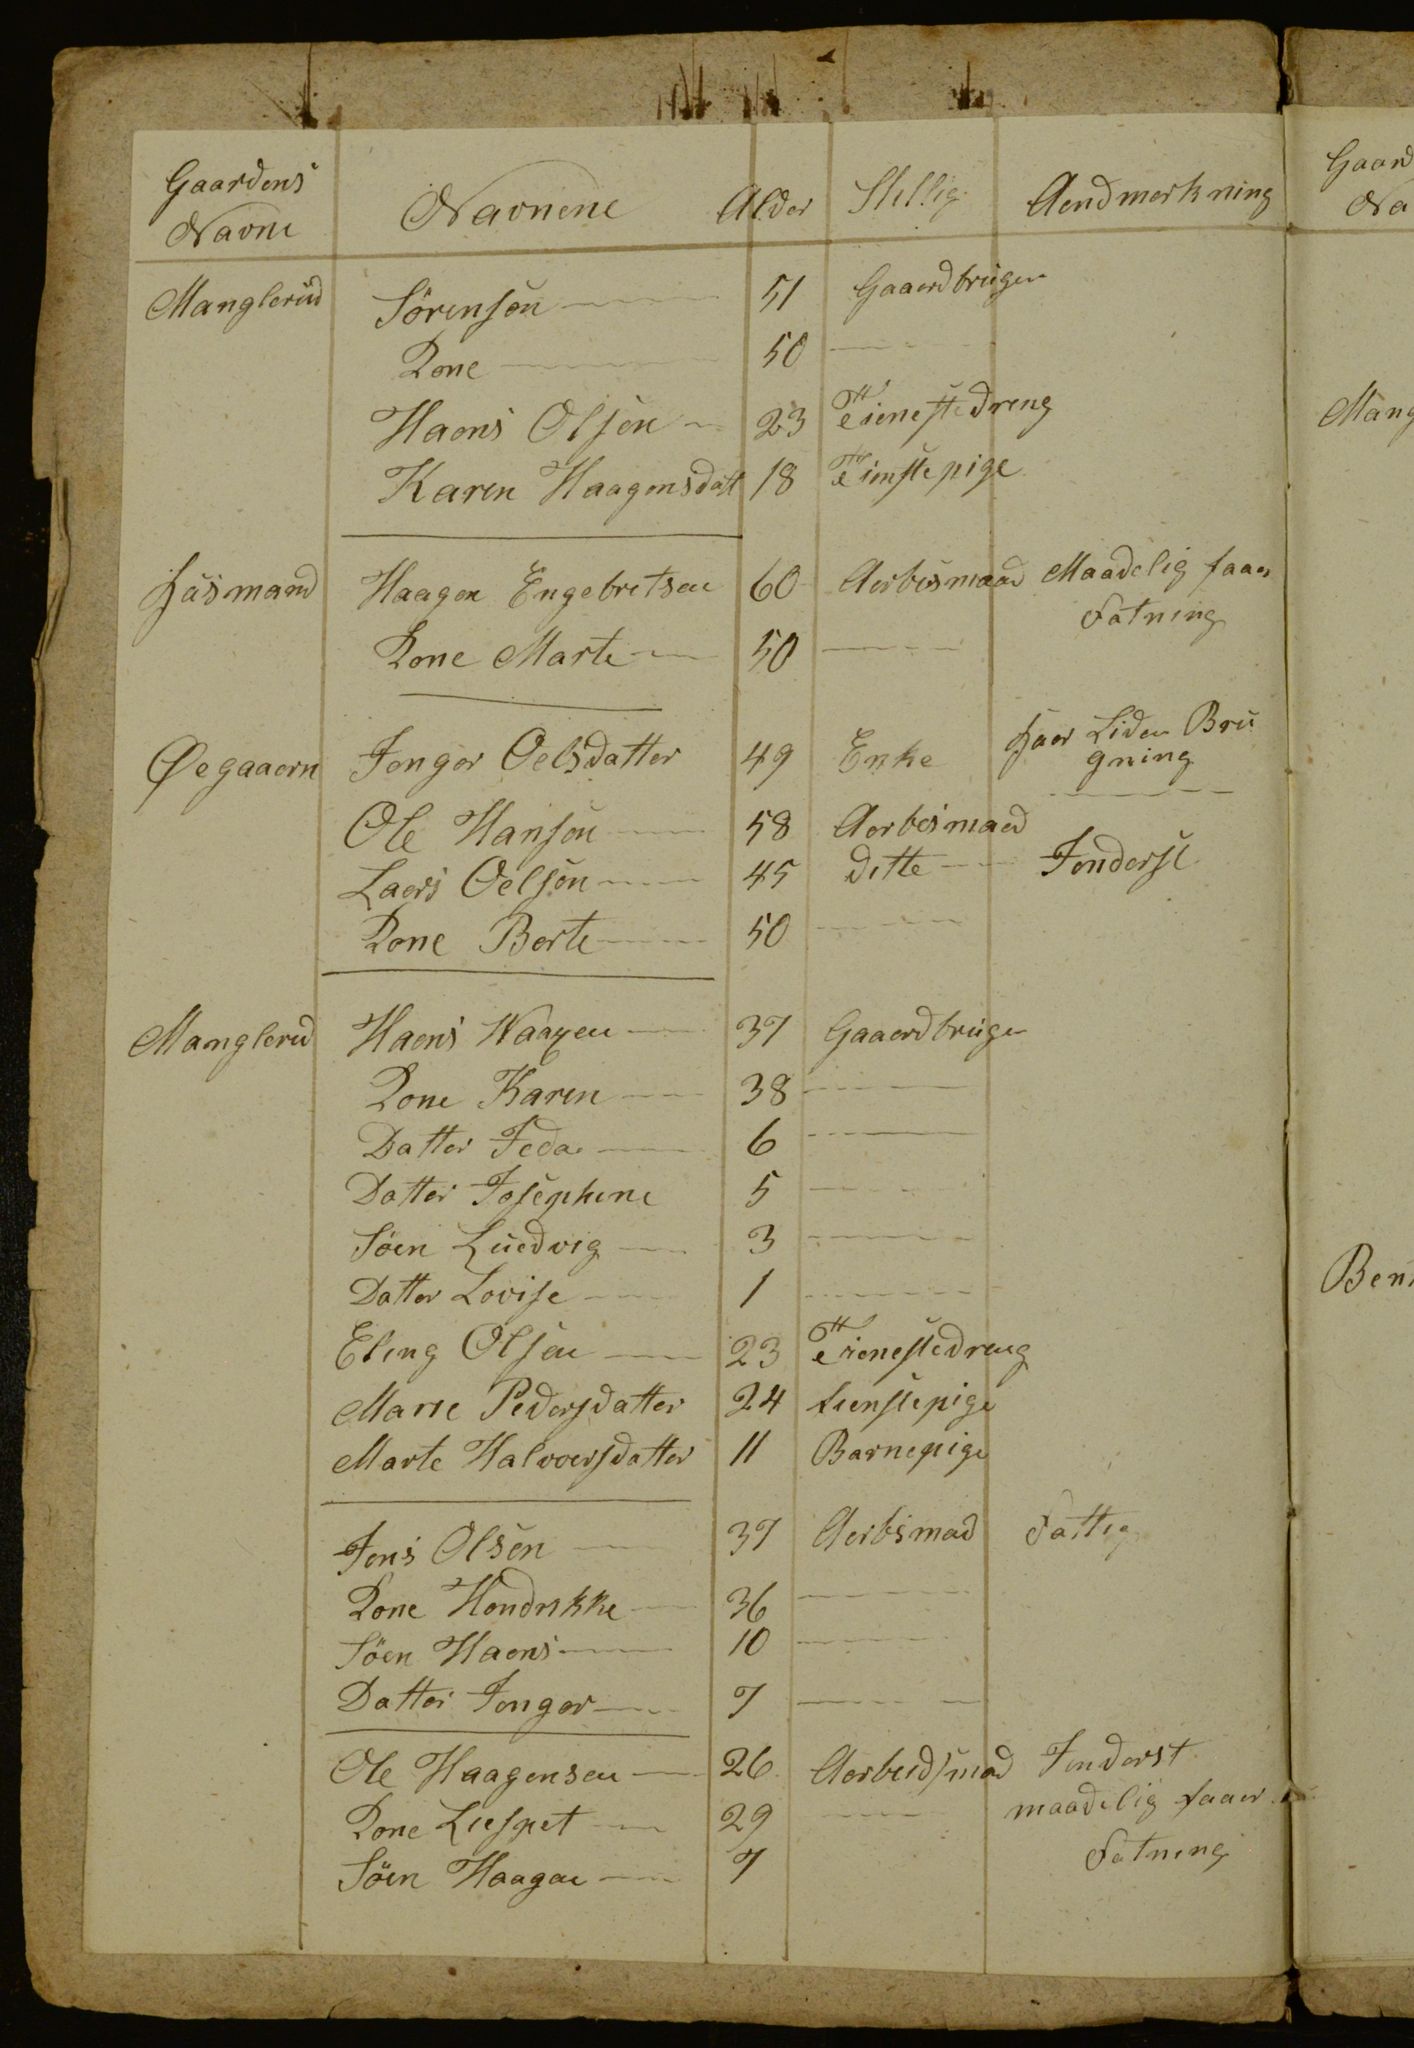 Gaardens Navne Navnene Alder Stellig Aendmerkning
Manglerud Sörensön 51 Gaaerdbruger
Kone 50
Haens Olsen 23 Tienestedreng
Karen Haagensdatt 18 Tienstepige
Husmand Haagen Engebretsen 60 Aerbesmaad Maadelig faaer
Fatning
Kone Marte 50
Øegaaern Jenger Oelsdatter 49 Enke haer Liden Bru
gning
Ole Hansen 58 Aerbesmaed
Laers Oelsön 45 ditte Jenderst
Kone Berte 50
Manglerud Haens Waagen 37 Gaaerdbruger
Kone Karen 38
Datter Feda 6
Datter Josephene 5
Söen Luedvig 3
Datter Lovise 1
Eleng Olsen 23 Tienestedreng
Marie Pedersdatter 24 tienstepige
Marte Halvoersdatter 11 Barnepige
Jens Olsen 37 Aerbsmad Fattig
Kone Hendrikke 36
Söen Haens 10
Datter Jenger 7
Ole Haagensen 26 Aerbeidsmad Jenderst
Kone Liespet 29 maadelig faaer
Söen Haagen 7 Fatning
Gaard
Na
Mang
Ben